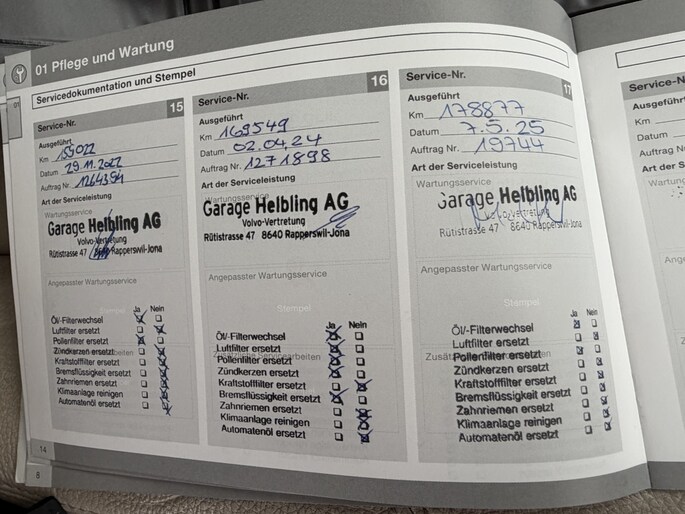 01 Pflege und Wartung
Servicedokumentation und Stempel
01
Service-Nr. 15
Ausgeführt
Km 159022
Datum 29.11.2022
Auftrag Nr. 1264394
Art der Serviceleistung
Wartungsservice
Garage Helbling AG
Volvo-Vertretung
Rütistrasse 47 8640 Rapperswil-Jona
Angepasster Wartungsservice
Ja Nein
Öl/-Filterwechsel
Luftfilter ersetzt
Pollenfilter ersetzt
Zündkerzen ersetzt
Kraftstofffilter ersetzt
Bremsflüssigkeit ersetzt
Zahnriemen ersetzt
Klimaanlage reinigen
Automatenöl ersetzt
Service-Nr. 16
Ausgeführt
Km 169549
Datum 02.04.24
Auftrag Nr. 1271898
Art der Serviceleistung
Wartungsservice
Garage Helbling AG
Volvo-Vertretung
Rütistrasse 47 8640 Rapperswil-Jona
Angepasster Wartungsservice
Stempel
Ja Nein
Öl/-Filterwechsel
Luftfilter ersetzt
Zusätzliche Servicearbeiten
Pollenfilter ersetzt
Zündkerzen ersetzt
Kraftstofffilter ersetzt
Bremsflüssigkeit ersetzt
Zahnriemen ersetzt
Klimaanlage reinigen
Automatenöl ersetzt
Service-Nr. 17
Ausgeführt
Km 178877
Datum 7.5.25
Auftrag Nr. 19744
Art der Serviceleistung
Wartungsservice
Garage Helbling AG
Volvo-Vertretung
Rütistrasse 47 8640 Rapperswil-Jona
Angepasster Wartungsservice
Stempel
Ja Nein
Öl/-Filterwechsel
Luftfilter ersetzt
Pollenfilter ersetzt
Zündkerzen ersetzt
Kraftstofffilter ersetzt
Bremsflüssigkeit ersetzt
Zahnriemen ersetzt
Klimaanlage reinigen
Automatenöl ersetzt
14
8
Service-N
Ausgeführt
Km
Datum
Auftrag Nr.
Art der Ser